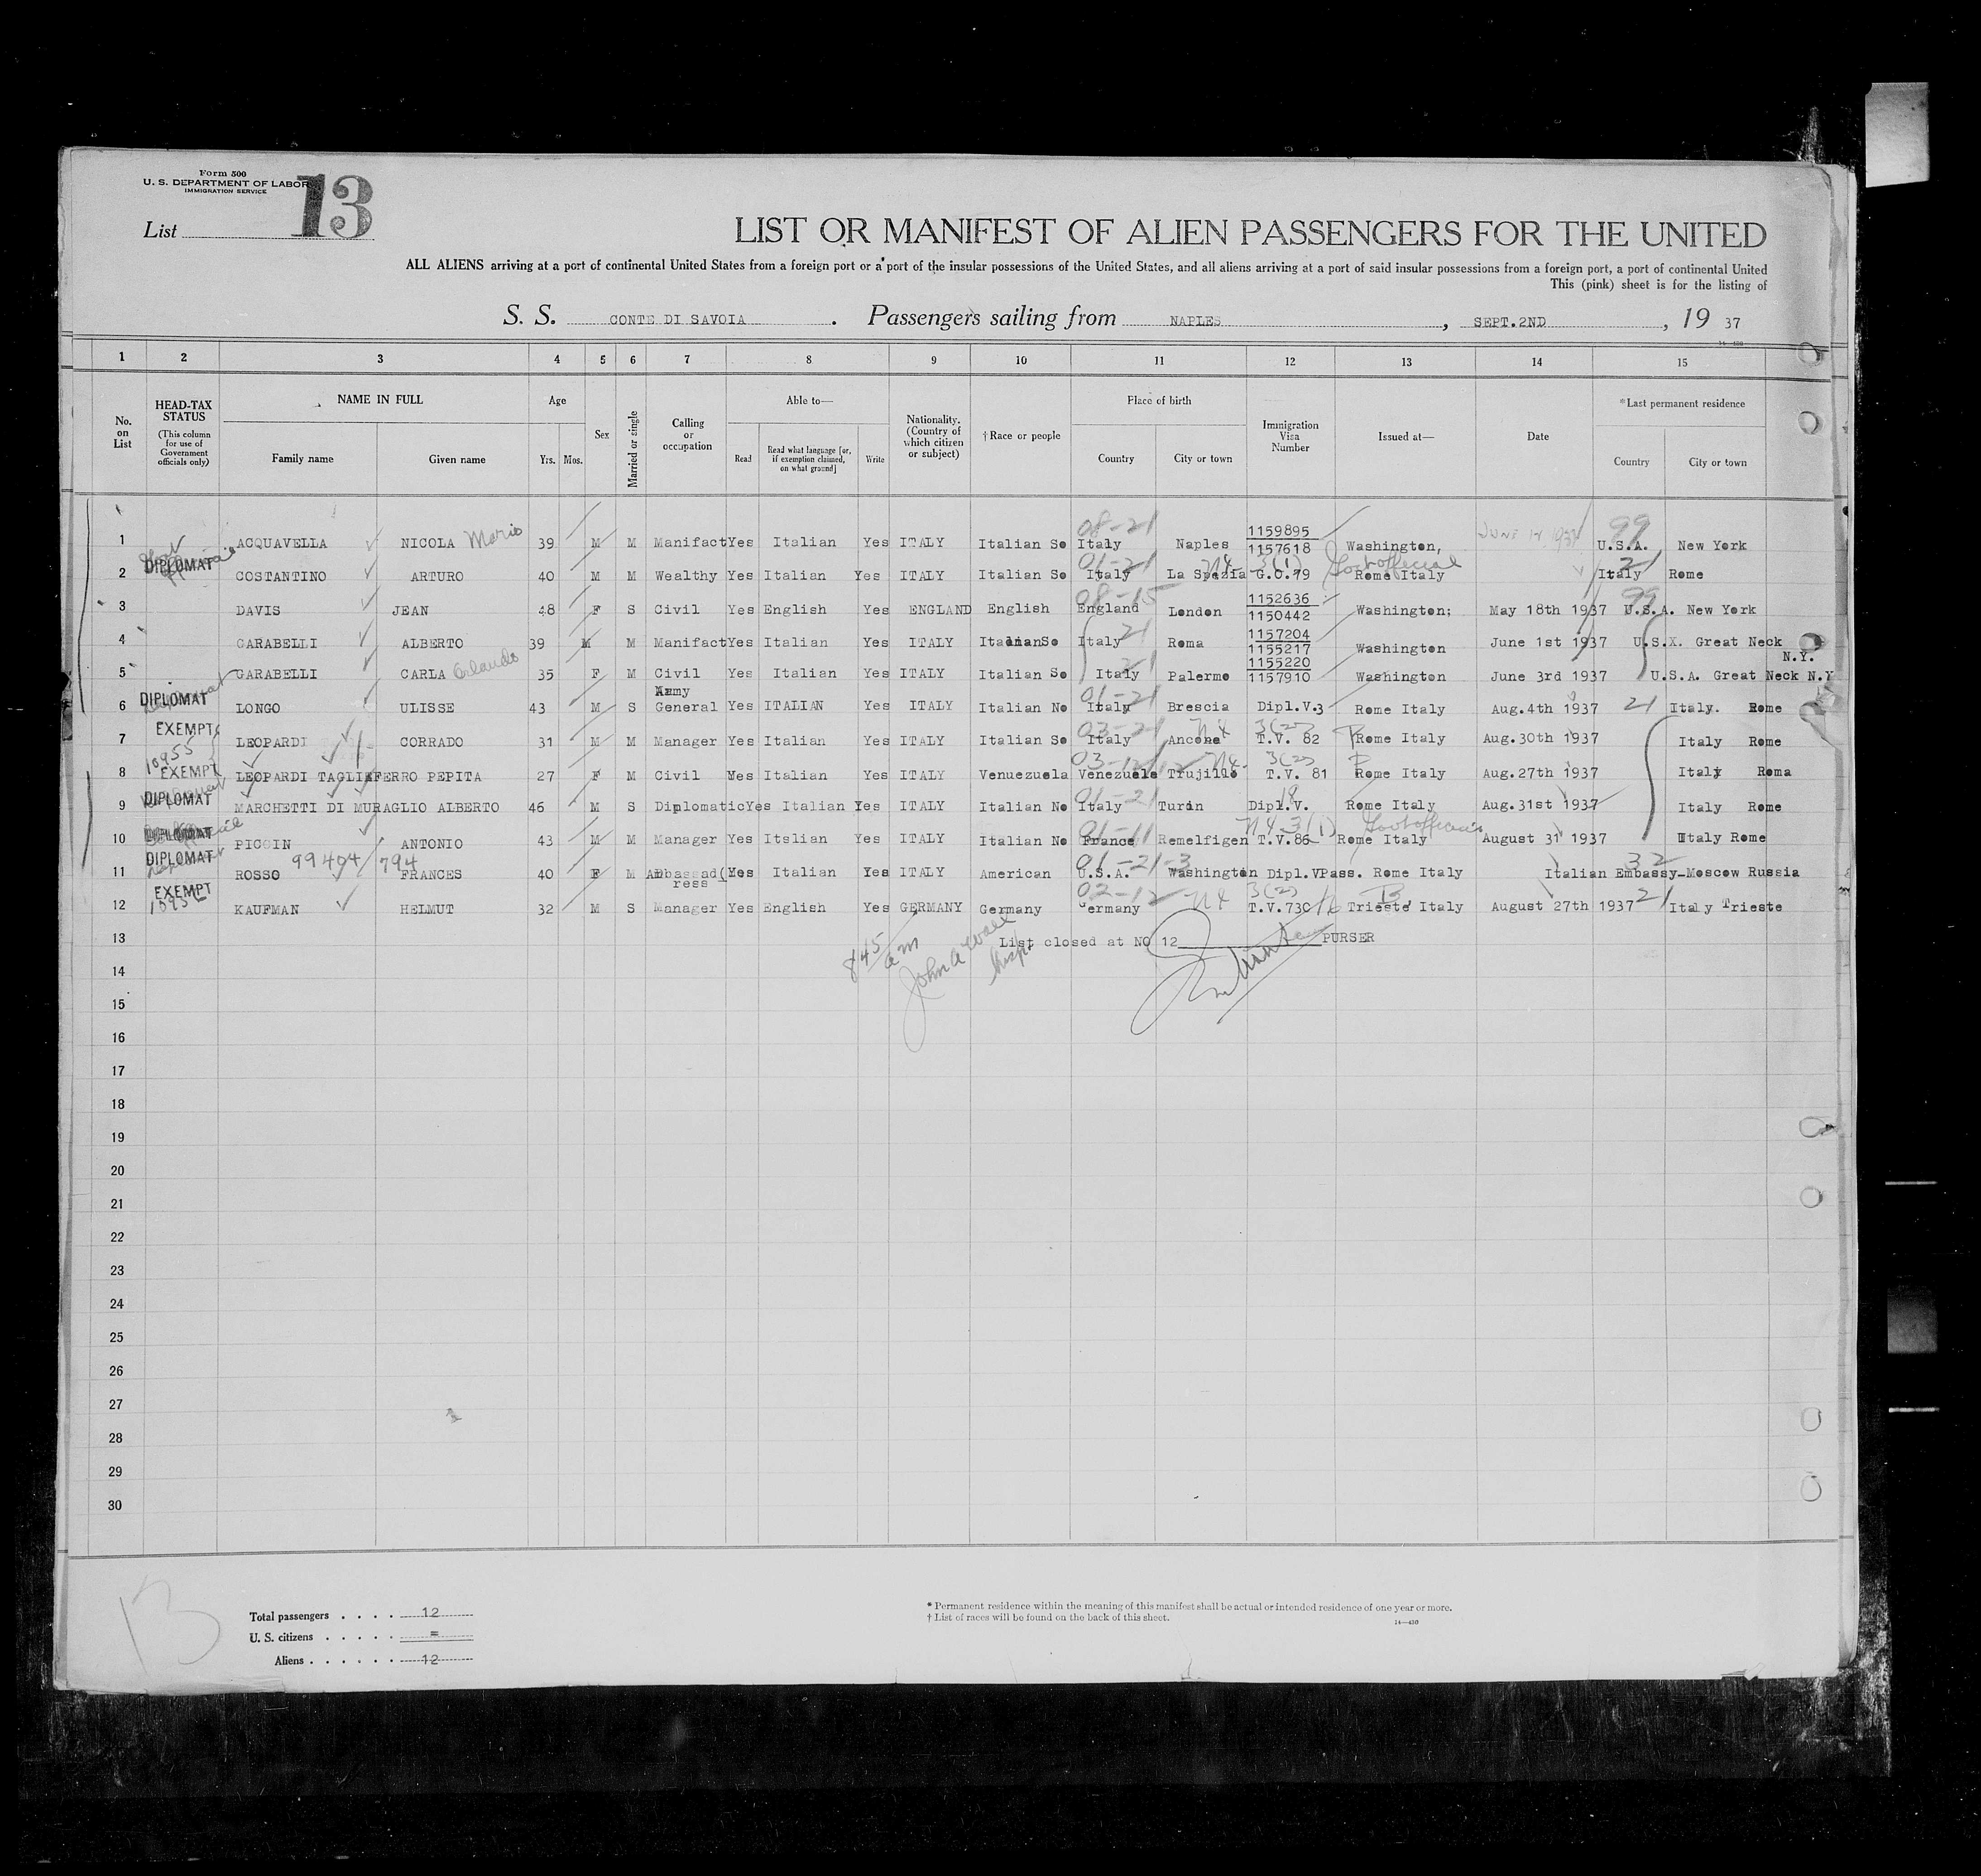 Form 500
U. S. DEPARTMENT OF LABOR
IMMIGRATION SERVICE
13
List
LIST OR MANIFEST OF ALIEN PASSENGERS FOR THE UNITED
ALL ALIENS arriving at a port of continental United States from a foreign port or a port of the insular possessions of the United States, and all aliens arriving at a port of said insular possessions from a foreign port, a port of continental United
This (pink) sheet is for the listing of
S. S. CONTE DI SAVOIA. Passengers sailing from NAPLES, SEPT.2ND, 19 37
14—430
1 2 3 4 5 6 7 8 9 10 11 12 13 14 15
No. on List HEAD-TAX STATUS (This column for use of Government officials only) NAME IN FULL Family name Given name Age Yrs. Mos. Sex Married or single Calling or occupation Able to— Read Read what language [or, if exemption claimed, on what ground] Write Nationality. (Country of which citizen or subject) †Race or people Place of birth Country City or town Immigration Visa Number Issued at— Date *Last permanent residence Country City or town
08-21 1159895 JUNE 14 1937 99
1 ACQUAVELLA NICOLA Mario 39 M M Manifact Yes Italian Yes ITALY Italian So Italy Naples 1157618 Washington, U.S.A. New York
DIPLOMAT 01-21 N4 3(1) Govt official 21
2 COSTANTINO ARTURO 40 M M Wealthy Yes Italian Yes ITALY Italian So Italy La Spezia G.O.79 Rome Italy Italy Rome
08-15 1152636 99
3 DAVIS JEAN 48 F S Civil Yes English Yes ENGLAND English England London 1150442 Washington; May 18th 1937 U.S.A. New York
4 GARABELLI ALBERTO 39 M M Manifact Yes Italian Yes ITALY ItalianSo Italy 21 Roma 1157204 1155217 Washington June 1st 1937 U.S.X. Great Neck N.Y.
5 GARABELLI CARLA Orlando 35 F M Civil Yes Italian Yes ITALY Italian So Italy 21 Palermo 1155220 1157910 Washington June 3rd 1937 U.S.A. Great Neck N.Y
DIPLOMAT Army 01-21
6 LONGO ULISSE 43 M S General Yes ITALIAN Yes ITALY Italian No Italy Brescia Dipl.V.3 Rome Italy Aug.4th 1937 21 Italy. Rome
EXEMPT 03-21 N4 3(2)
7 LEOPARDI CORRADO 31 M M Manager Yes Italian Yes ITALY Italian So Italy Ancona T.V. 82 Rome Italy Aug.30th 1937 Italy Rome
1095 EXEMPT 03-12 N4 3(2)
8 LEOPARDI TAGLIAFERRO PEPITA 27 F M Civil Yes Italian Yes ITALY Venuezuela Venezuela Trujillo T.V. 81 Rome Italy Aug.27th 1937 Italy Roma
DIPLOMAT 01-21 18
9 MARCHETTI DI MURAGLIO ALBERTO 46 M S Diplomatic Yes Italian Yes ITALY Italian No Italy Turin Dipl.V. Rome Italy Aug.31st 1937 Italy Rome
DIPLOMAT 01-11 N4 3(1) Govt official
10 PICCIN ANTONIO 43 M M Manager Yes Itelian Yes ITALY Italian No France Remelfigen T.V.86 Rome Italy August 31 1937 Italy Rome
DIPLOMAT 99404/794 01-21-3 32
11 ROSSO FRANCES 40 F M Ambassad(ress Yes Italian Yes ITALY American U.S.A. Washington Dipl.VPass. Rome Italy Italian Embassy-Moscow Russia
EXEMPT 1095 02-12 N4 3(2) B
12 KAUFMAN HELMUT 32 M S Manager Yes English Yes GERMANY Germany Germany T.V.730 Trieste Italy August 27th 1937 21 Italy Trieste
13 List closed at NO 12 PURSER
845 am John A Wall Insp.
14
15
16
17
18
19
20
21
22
23
24
25
26
27
28
29
30
13
Total passengers . . . . 12
U. S. citizens . . . . . =
Aliens . . . . . . 12
* Permanent residence within the meaning of this manifest shall be actual or intended residence of one year or more.
† List of races will be found on the back of this sheet.
14—430